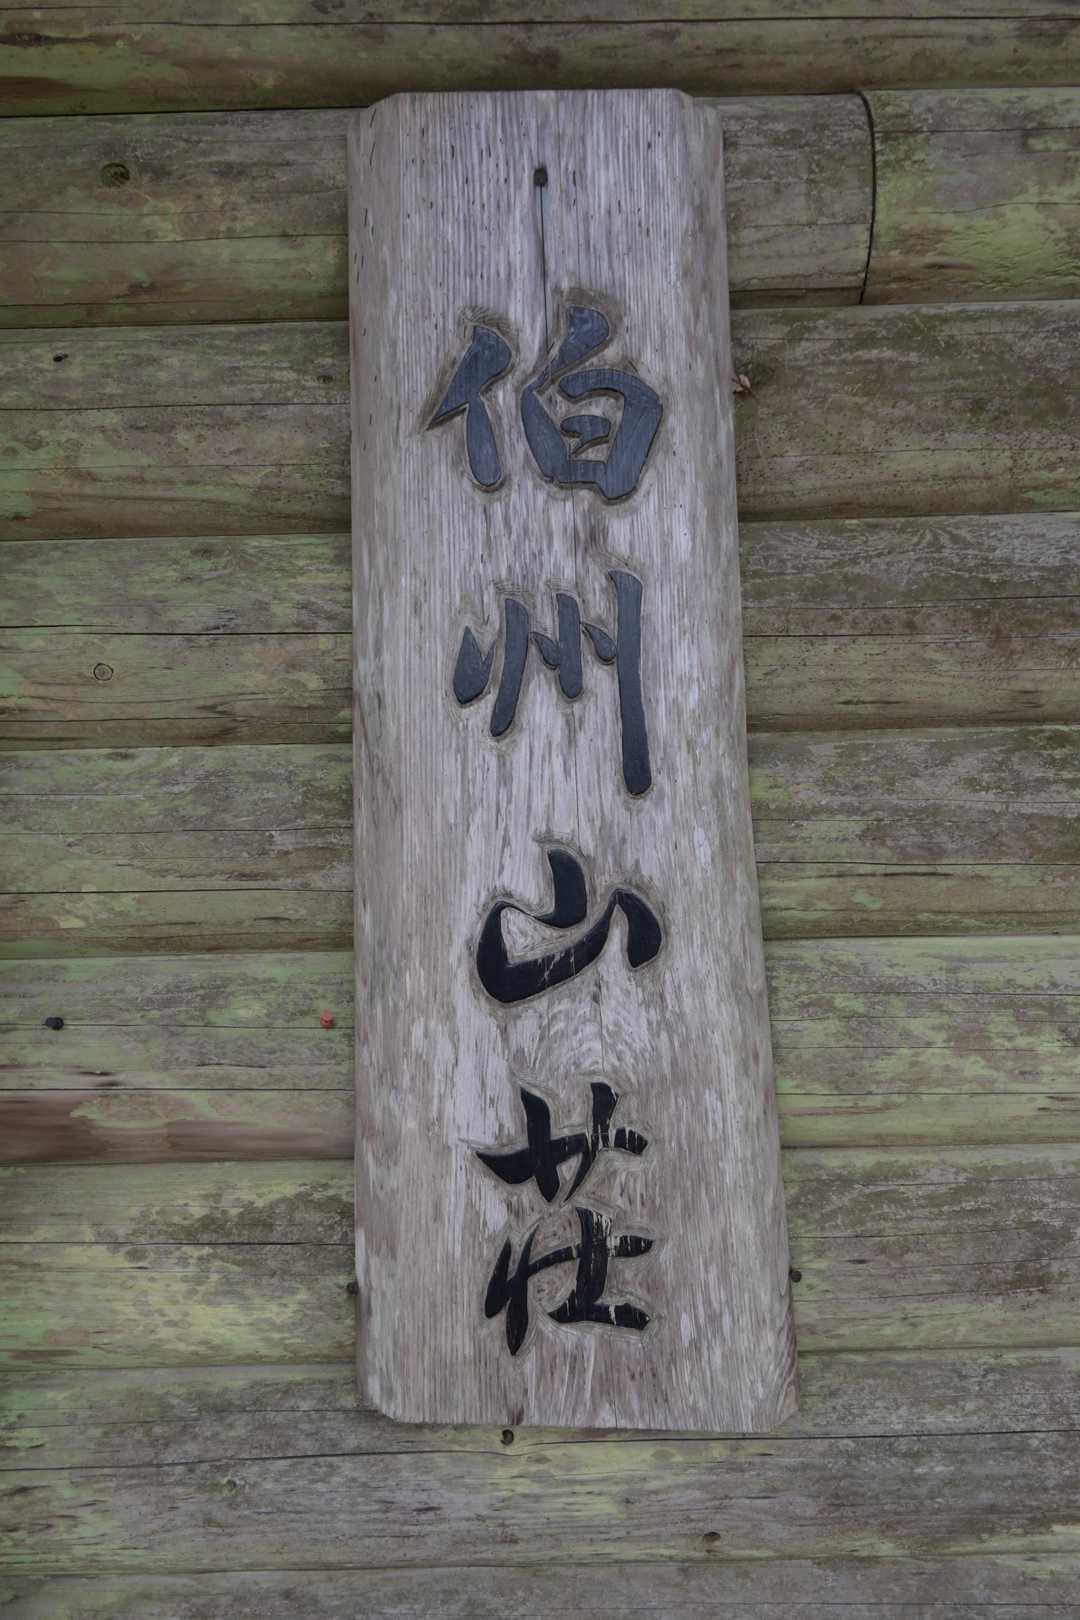 伯州山荘